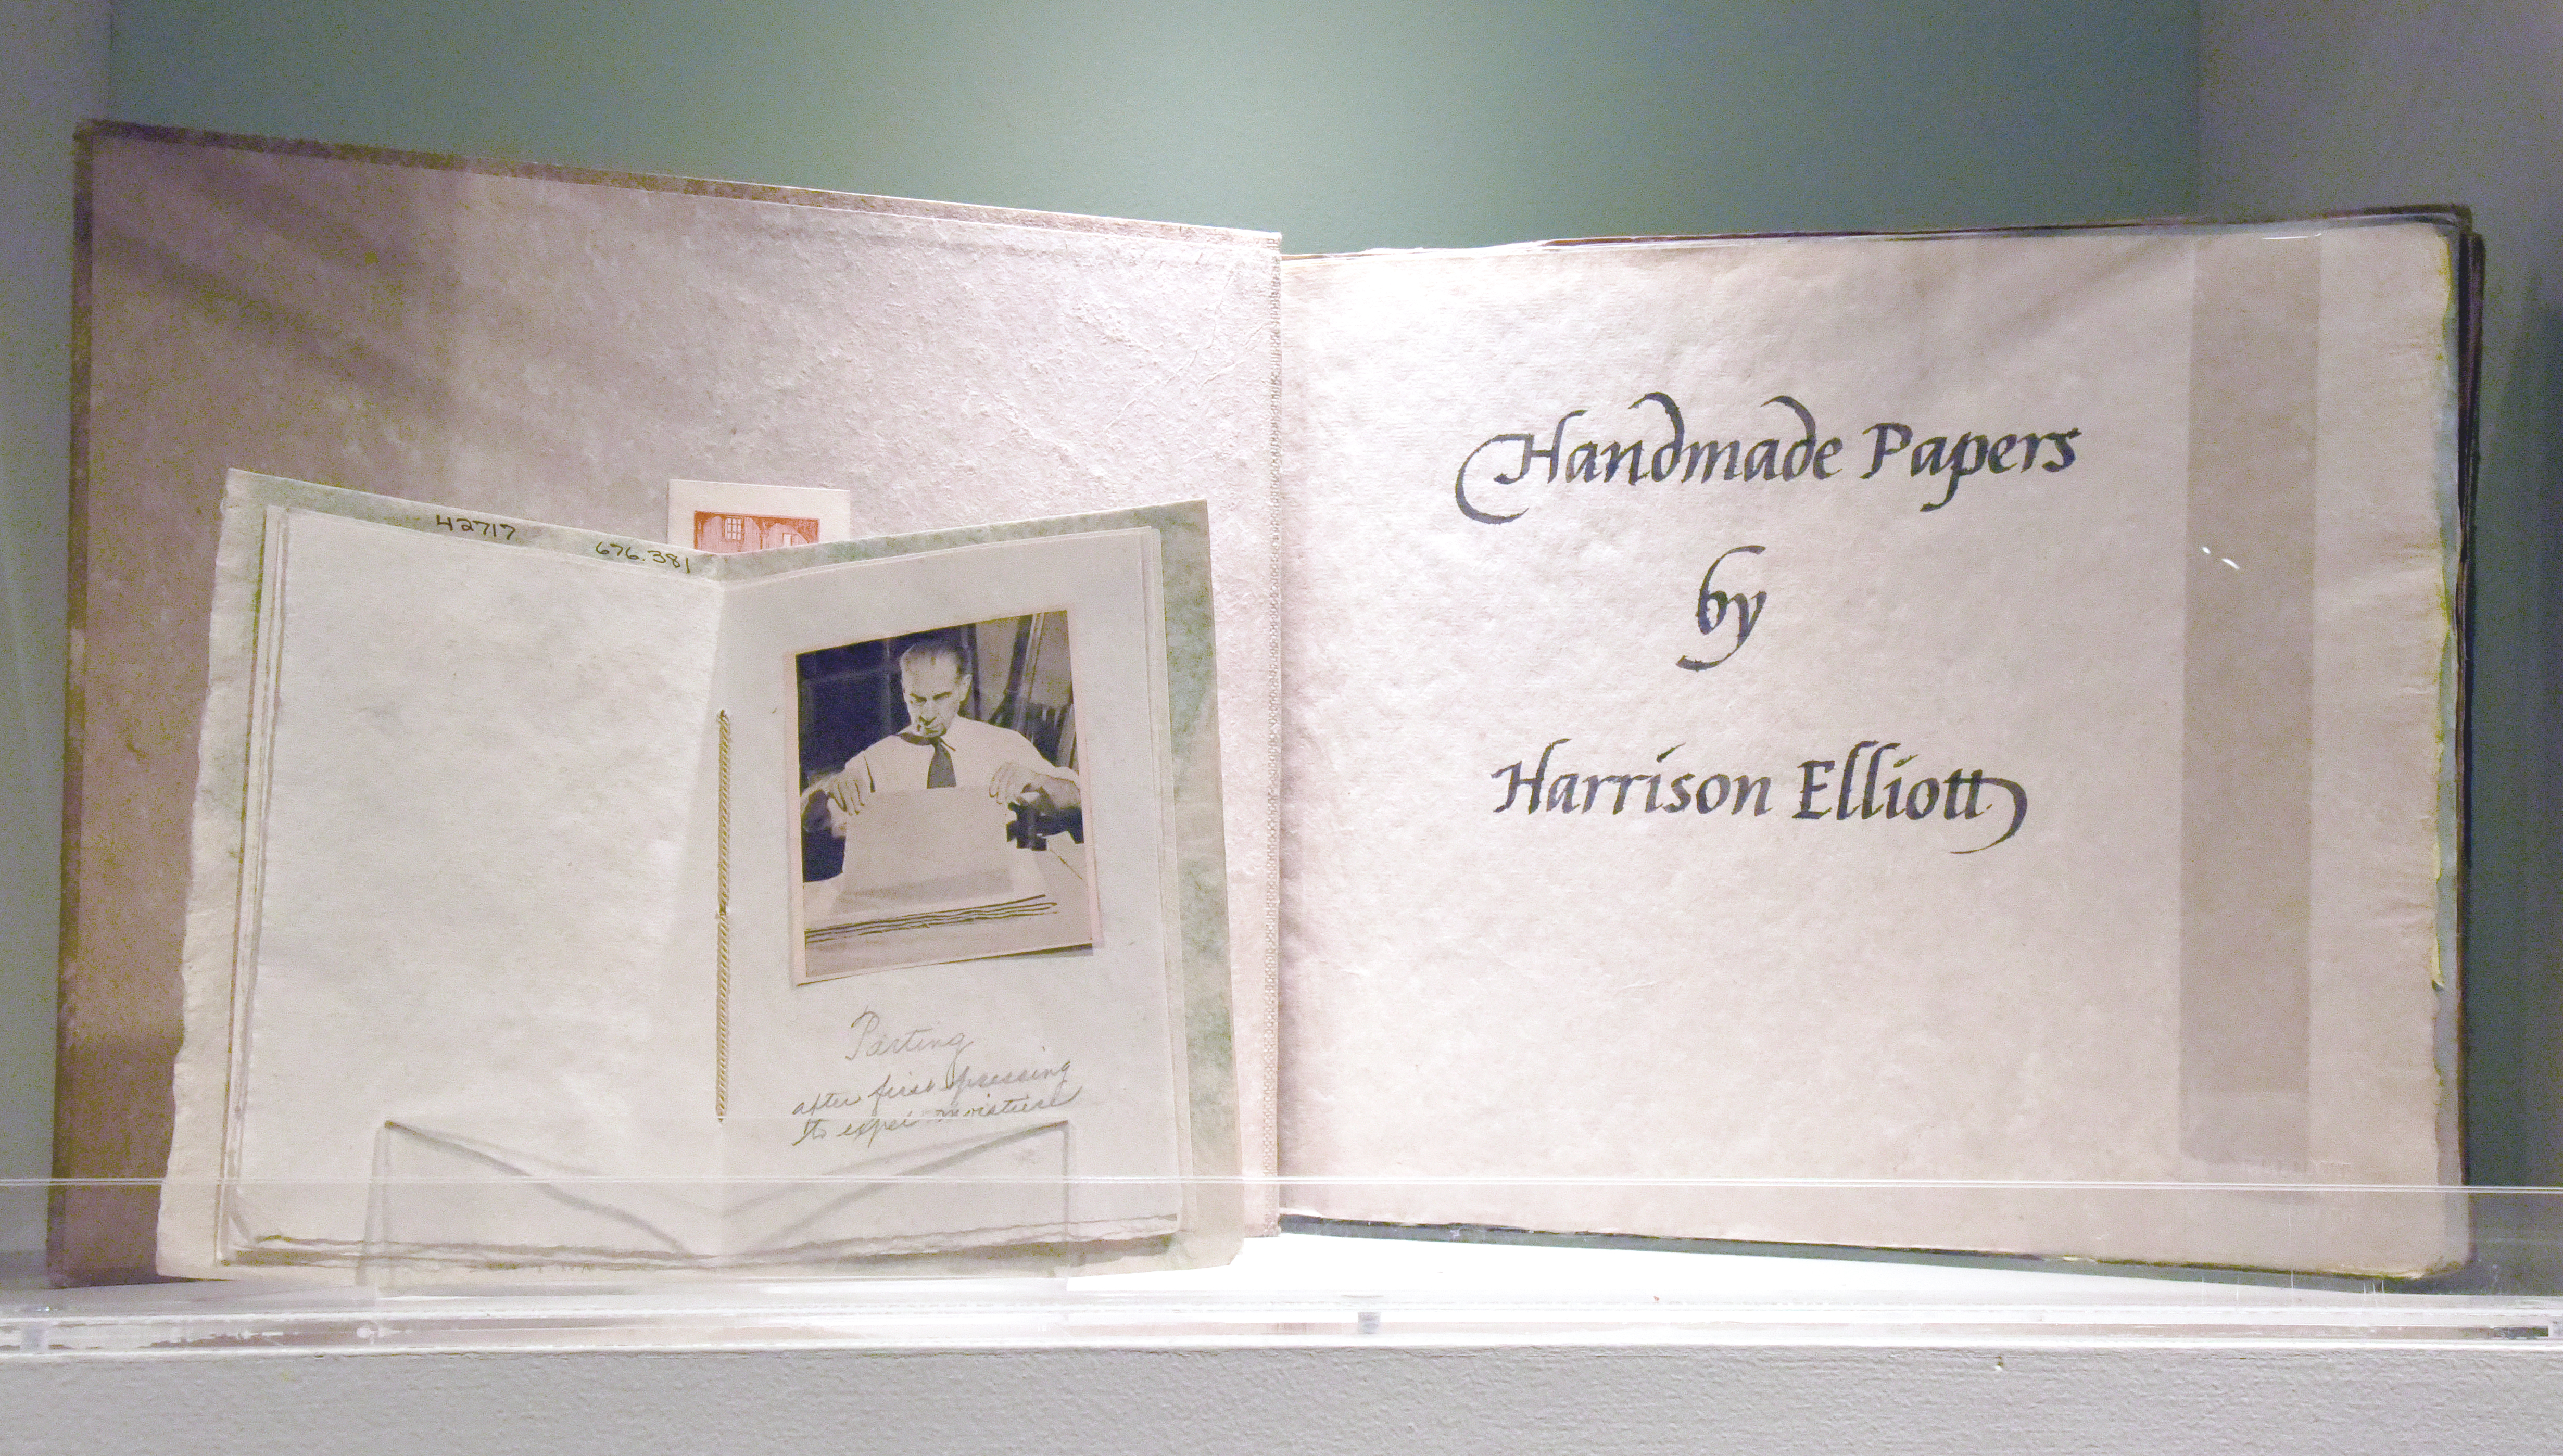 42717
676.381
Parting
after first pressing
to expel moisture
Handmade Papers
by
Harrison Elliott